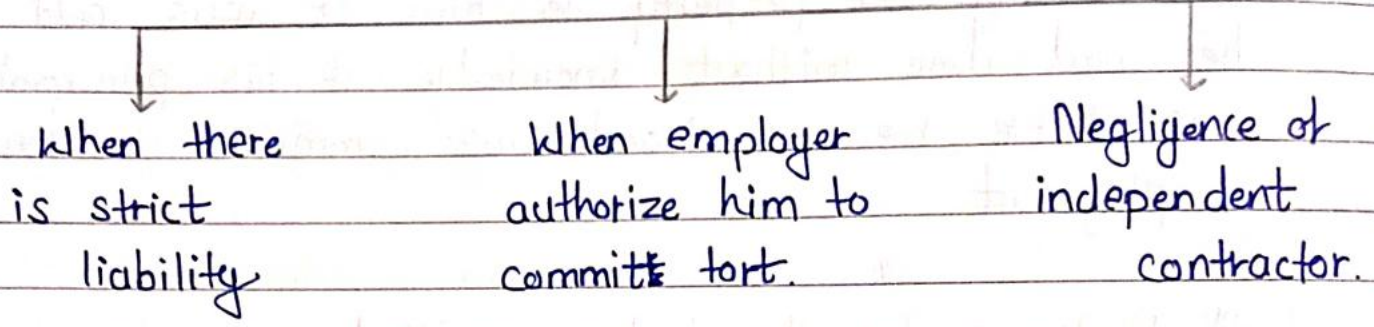 When there
is strict
liability
When employer
authorize him to
committ tort.
Negligence of
independent
contractor.